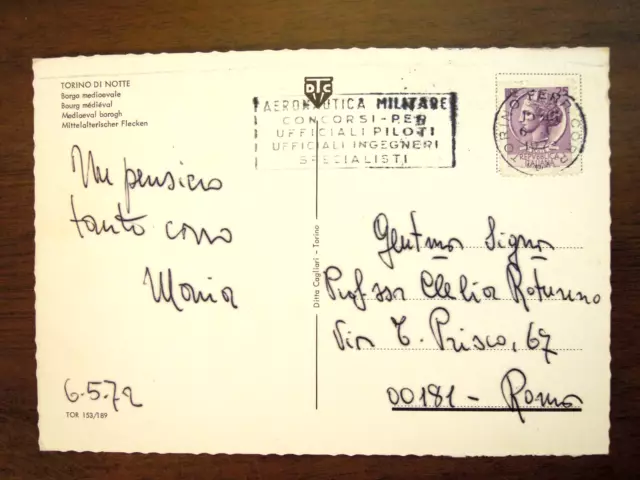 TORINO DI NOTTE
Borgo medioevale
Bourg médiéval
Mediaeval borogh
Mittelalterischer Flecken
DTC
AERONAUTICA MILITARE
CONCORSI-PER
UFFICIALI PILOTI
UFFICIALI INGEGNERI
SPECIALISTI
25
TORINO FERR. CORR.
Un pensiero
tanto caro
Maria
6.5.72
TOR 153/189
Ditta Cagliari - Torino
Gent.ma Sig.na
Prof.ssa Clelia Rotunno
Via T. Prisco, 67
00181 - Roma